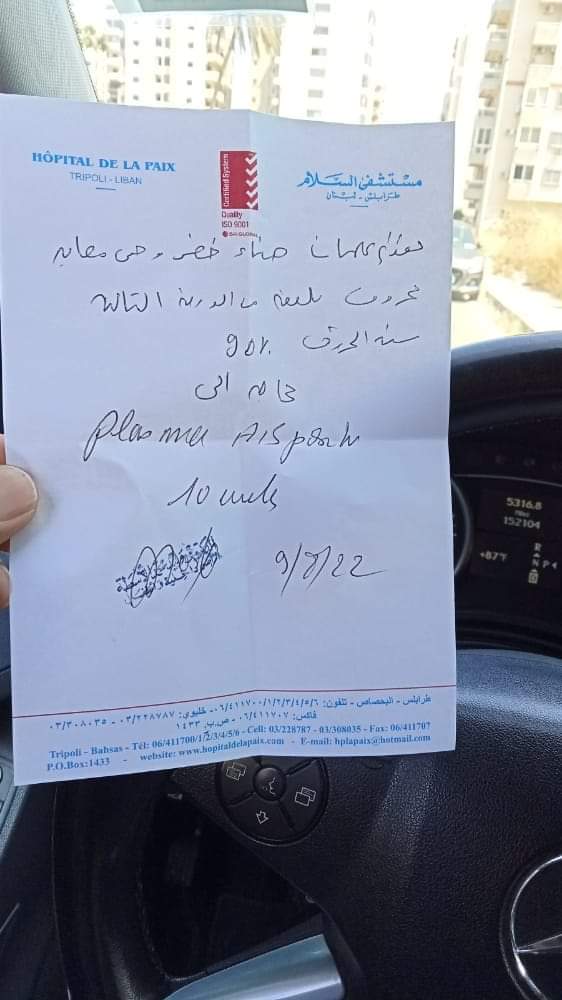 HÔPITAL DE LA PAIX
TRIPOLI - LIBAN
Certified System
Quality
ISO 9001
SAI GLOBAL
مستشفى السلام
طرابلس - لبنان
خضر وهي مصابه
بحروق بليغة من الدرجة الثالثة
نسبة الحروق 90%
بحاجة الى
Plasma
10 units
9/8/22
طرابلس - البحصاص - تلفون: ٠٦/٤١١٧٠٠/١/٢/٣/٤/٥/٦ - خليوي: ٠٣/٢٢٨٧٨٧ - ٠٣/٣٠٨٠٣٥
فاكس: ٠٦/٤١١٧٠٧ - ص.ب. ١٤٣٣
Tripoli - Bahsas - Tél: 06/411700/1/2/3/4/5/6 - Cell: 03/228787 - 03/308035 - Fax: 06/411707
P.O.Box:1433 - website: www.hopitaldelapaix.com - E-mail: hplapaix@hotmail.com
5316.8
Miles
152104
+87°F
R
N P
D